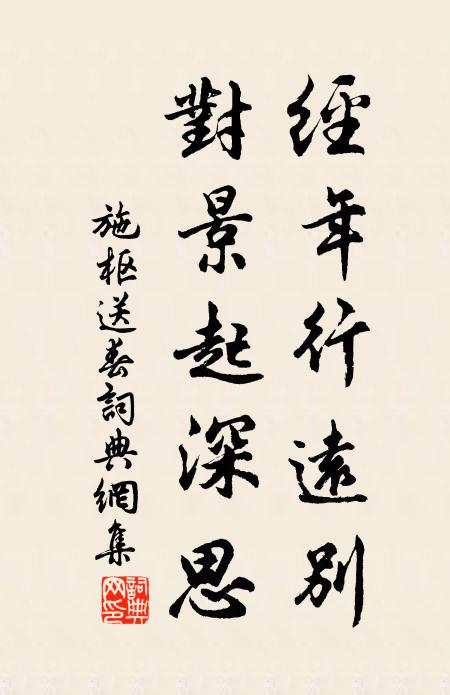 經年行遠別
對景起深思
施枢送春詞典網集
詞典网印